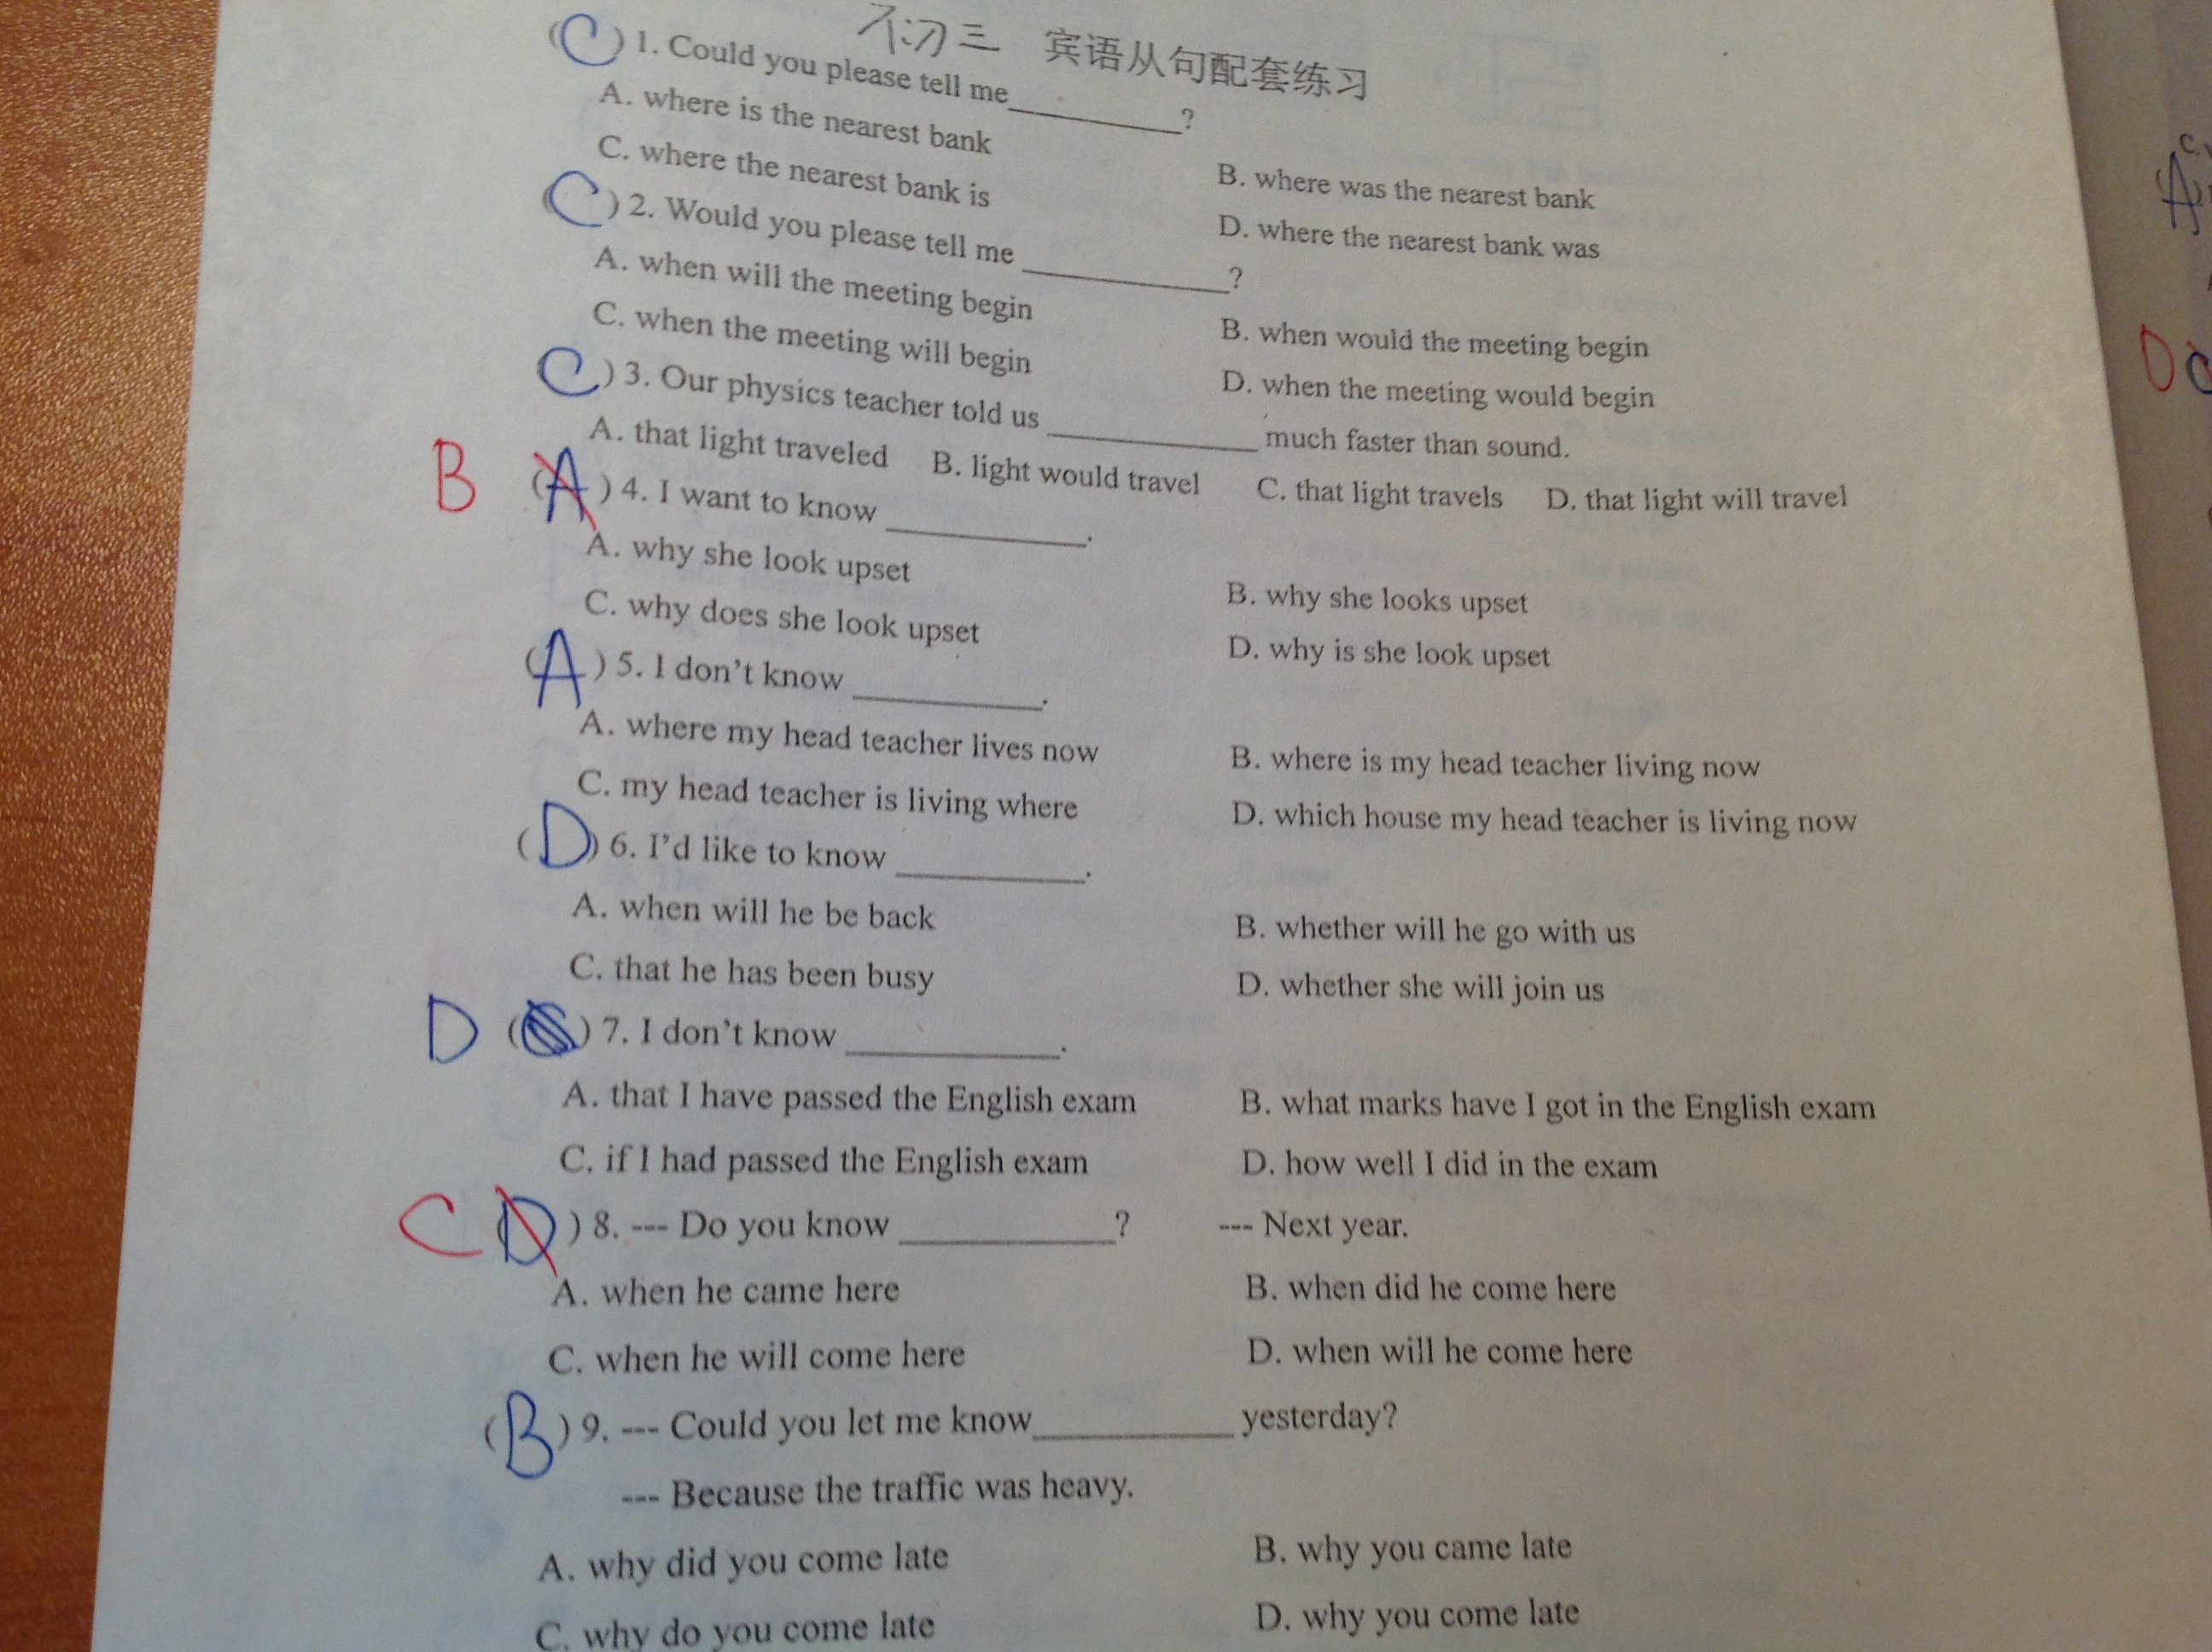 不初三 宾语从句配套练习
(C) 1. Could you please tell me__________?
A. where is the nearest bank B. where was the nearest bank
C. where the nearest bank is D. where the nearest bank was
(C) 2. Would you please tell me __________?
A. when will the meeting begin B. when would the meeting begin
C. when the meeting will begin D. when the meeting would begin
(C) 3. Our physics teacher told us __________ much faster than sound.
A. that light traveled B. light would travel C. that light travels D. that light will travel
B (A) 4. I want to know __________.
A. why she look upset B. why she looks upset
C. why does she look upset D. why is she look upset
(A) 5. I don't know __________.
A. where my head teacher lives now B. where is my head teacher living now
C. my head teacher is living where D. which house my head teacher is living now
(D) 6. I'd like to know __________.
A. when will he be back B. whether will he go with us
C. that he has been busy D. whether she will join us
D ( ) 7. I don't know __________.
A. that I have passed the English exam B. what marks have I got in the English exam
C. if I had passed the English exam D. how well I did in the exam
C (D) 8. --- Do you know __________? --- Next year.
A. when he came here B. when did he come here
C. when he will come here D. when will he come here
(B) 9. --- Could you let me know__________ yesterday?
--- Because the traffic was heavy.
A. why did you come late B. why you came late
C. why do you come late D. why you come late
A
D